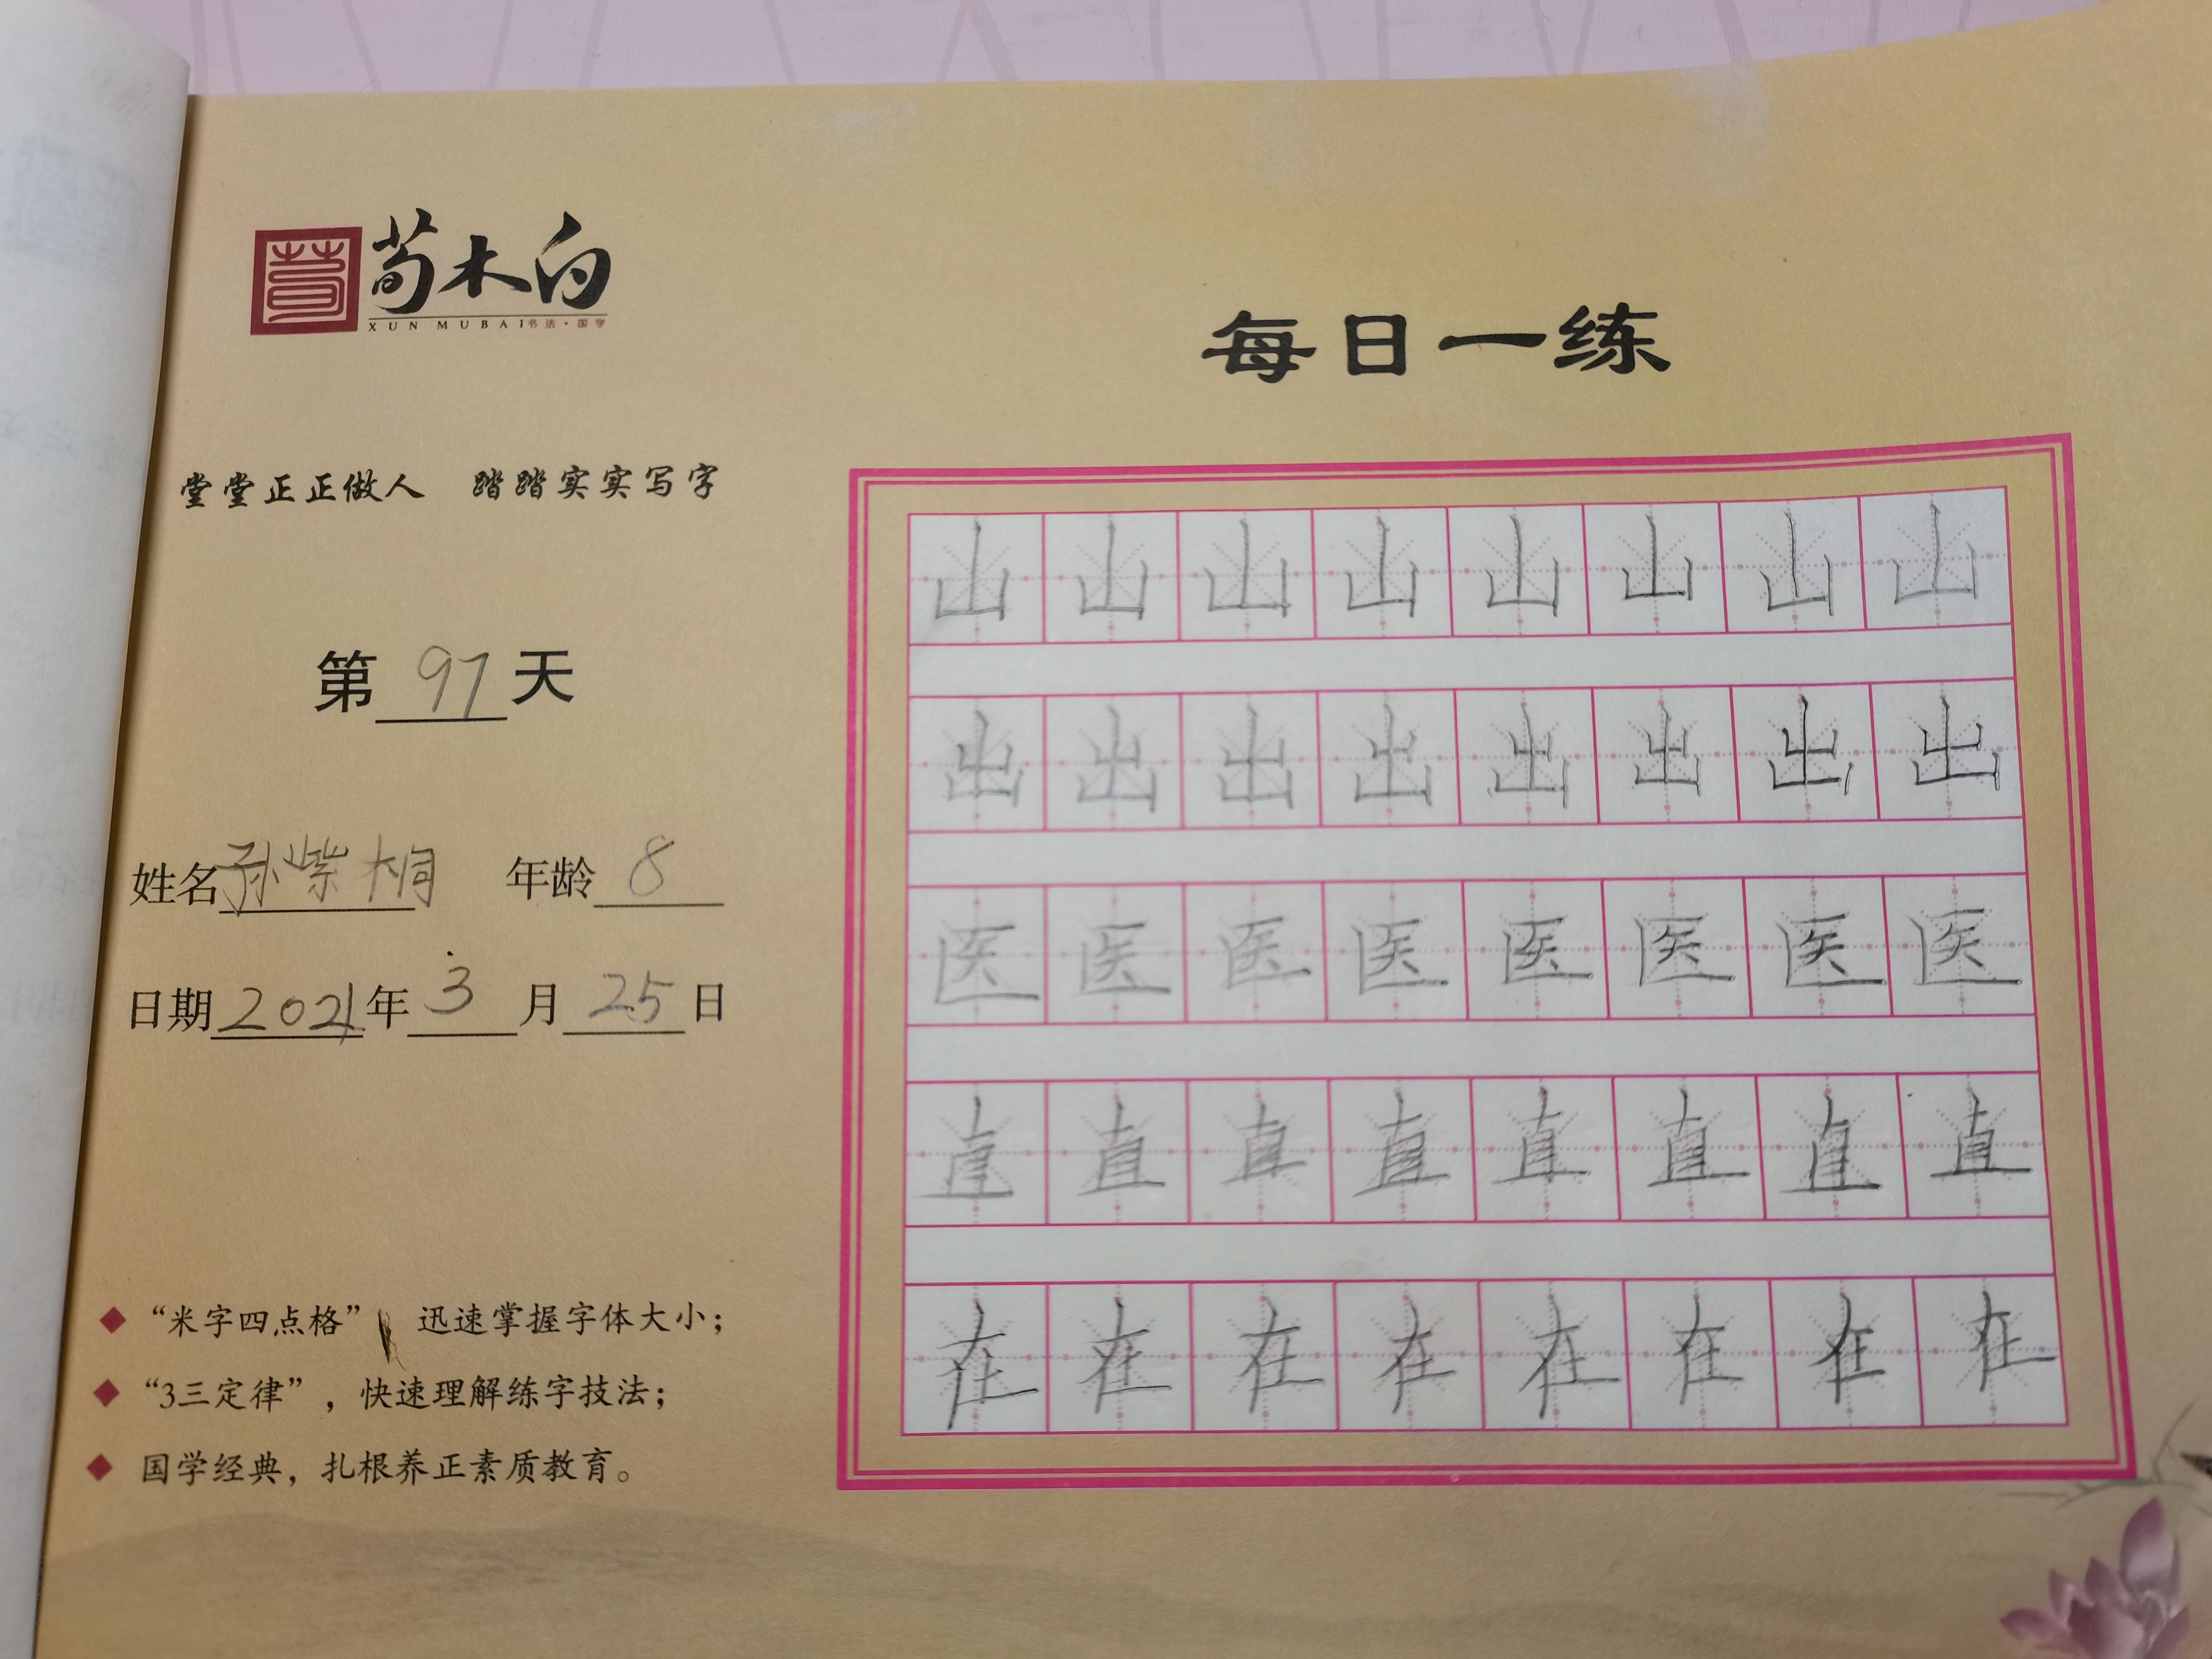 荀木白
XUN MUBAI书法·国学
每日一练
堂堂正正做人 踏踏实实写字
第97天
姓名孙紫桐 年龄8
日期2021年3月25日
“米字四点格” 迅速掌握字体大小；
“3三定律”，快速理解练字技法；
国学经典，扎根养正素质教育。
山山山山山山山山
出出出出出出出出
医医医医医医医医
直直直直直直直直
在在在在在在在在